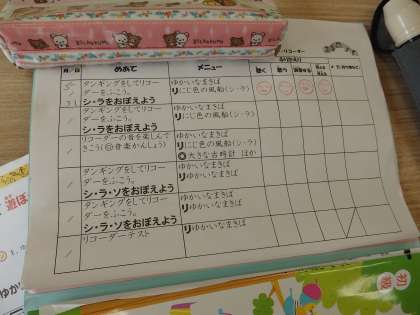 リコーダー
月／日
めあて
メニュー
ふりかえり
聴く
5／31
タンギングをしてリコーダーをふこう。
シ・ラをおぼえよう
ゆかいなまきば
リにじ色の風船(シ・ラ)
／
タンギングをしてリコーダーをふこう。
シ・ラをおぼえよう
ゆかいなまきば
リにじ色の風船(シ・ラ)
／
リコーダーの音を楽しんできこう(◎音楽かんしょう)
ゆかいなまきば
リにじ色の風船(シ・ラ)
◎大きな古時計 ほか
／
タンギングをしてリコーダーをふこう。
シ・ラ・ソをおぼえよう
ゆかいなまきば
リゆかいなまきば
／
タンギングをしてリコーダーをふこう。
シ・ラ・ソをおぼえよう
ゆかいなまきば
リゆかいなまきば
／
リコーダーテスト
リゆかいなまきば
初級